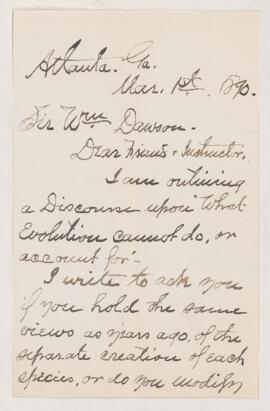 Atlanta. Ga.
Mar. 1st. 1890.
Sir Wm Dawson.
Dear Friend & Instructor,
I am outlining
a Discourse upon "What
Evolution cannot do, or
account for"-
I write to ask you
if you hold the same
views as years ago, of the
separate creation of each
species, or do you modify